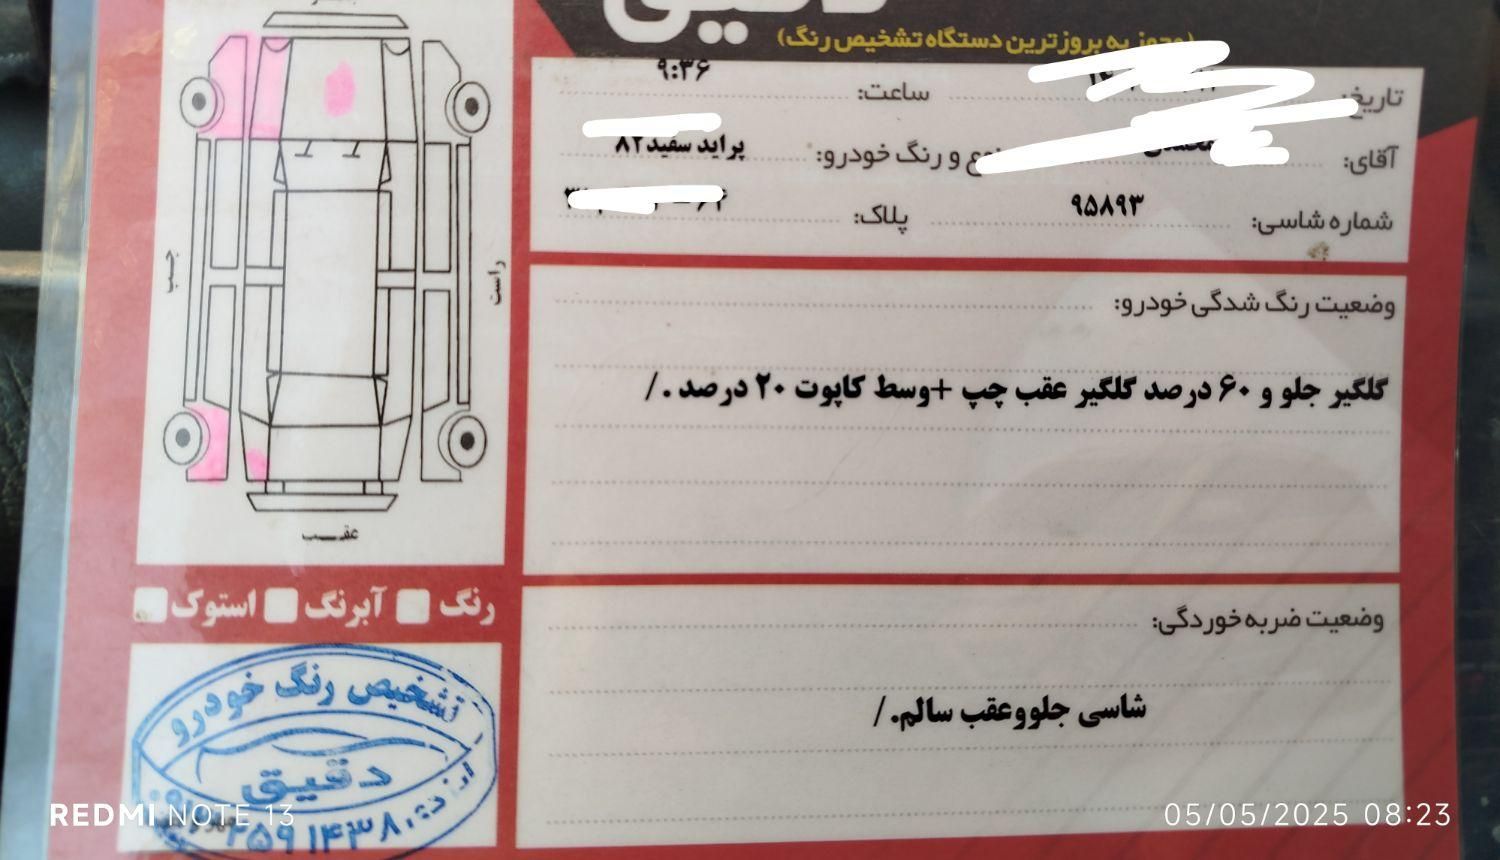 دقیق
(مجهز به بروزترین دستگاه تشخیص رنگ)
تاریخ:
ساعت: ۹:۳۶
آقای:
نوع و رنگ خودرو: پراید سفید۸۲
شماره شاسی: ۹۵۸۹۳
پلاک:
وضعیت رنگ شدگی خودرو:
گلگیر جلو و ۶۰ درصد گلگیر عقب چپ +وسط کاپوت ۲۰ درصد ./
وضعیت ضربه خوردگی:
شاسی جلووعقب سالم./
چپ
راست
عقب
رنگ
آبرنگ
استوک
تشخیص رنگ خودرو
دقیق
REDMI NOTE 13
05/05/2025 08:23